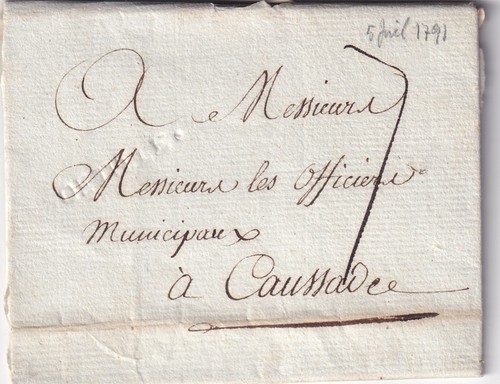 5 Juil 1791
A Messieurs
Messieurs les officiers
municipaux
à Caussade